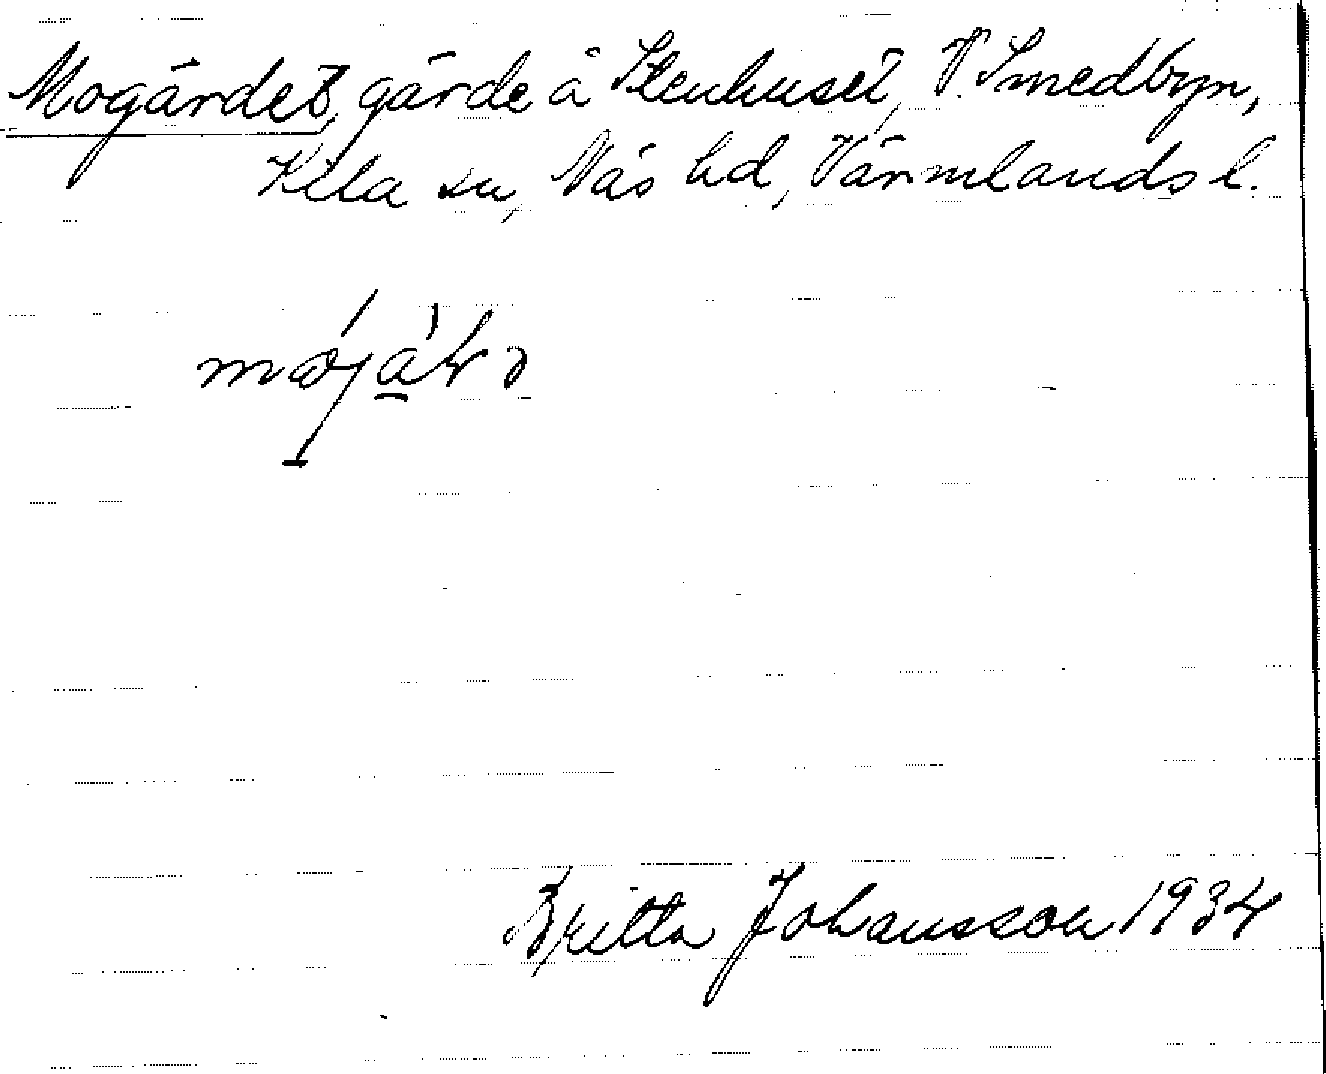 Mogärdet, gärde å Stenhuset, V. Smedbyn,
Kila sn, Näs hd, Värmlands l.
Britta Johansson 1934